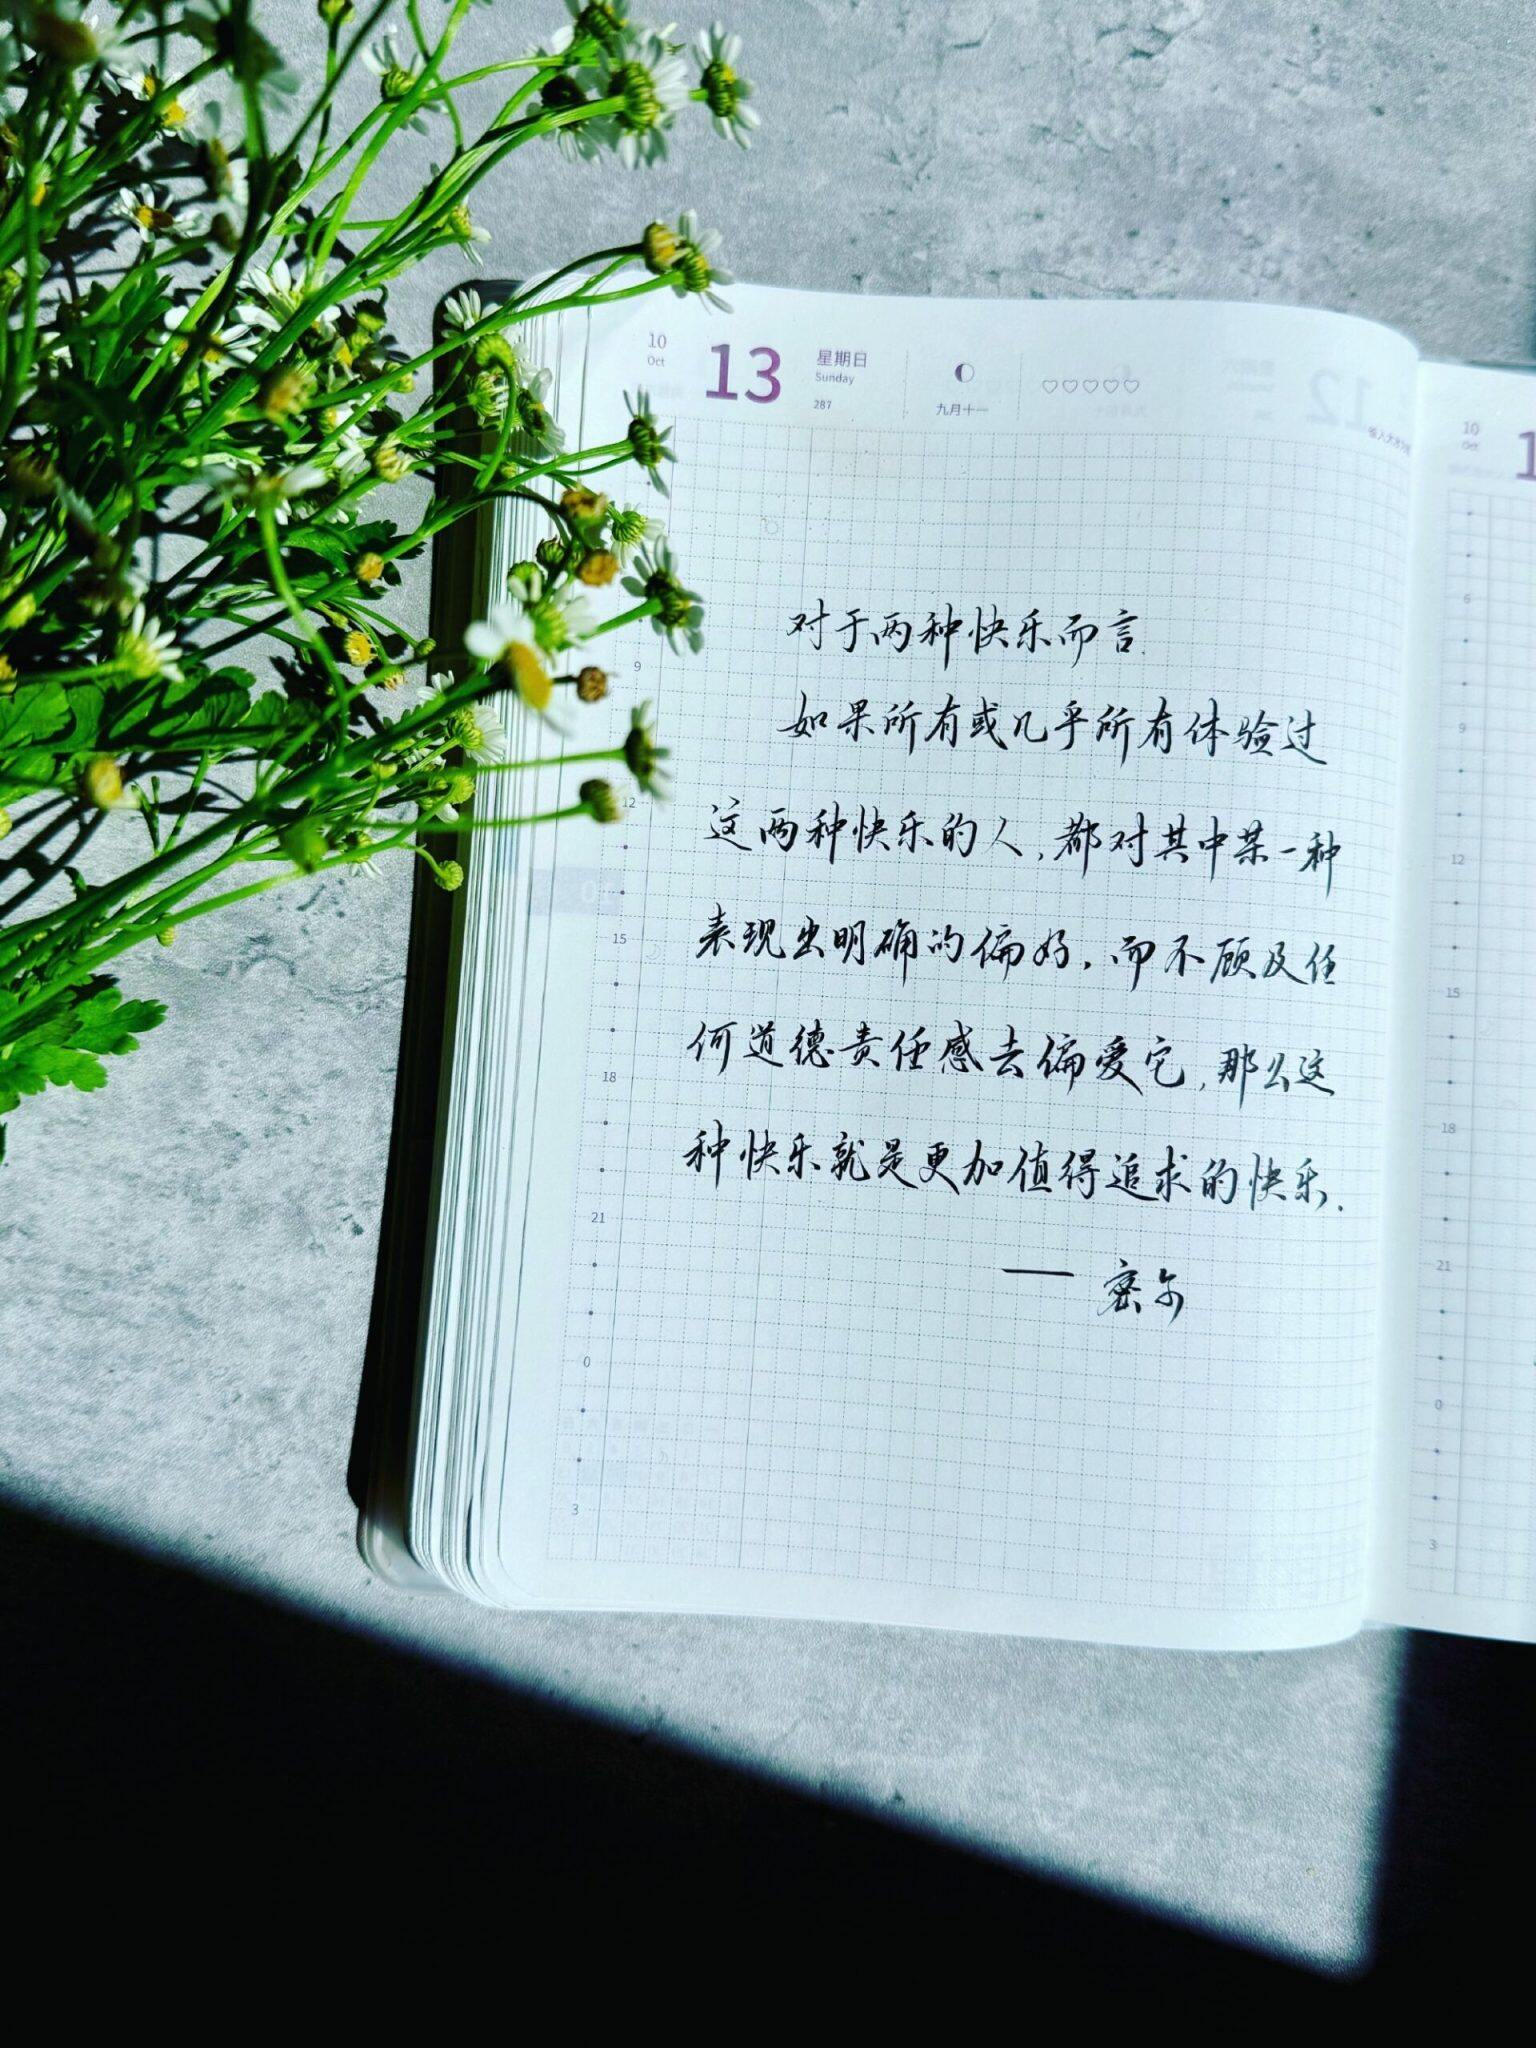 10
Oct
13
星期日
Sunday
287
九月十一
♡♡♡♡♡
对于两种快乐而言.
如果所有或几乎所有体验过
这两种快乐的人,都对其中某一种
表现出明确的偏好,而不顾及任
何道德责任感去偏爱它,那么这
种快乐就是更加值得追求的快乐.
—— 密尔
9
12
15
18
21
0
3
10
Oct
1
6
9
12
15
18
21
0
3